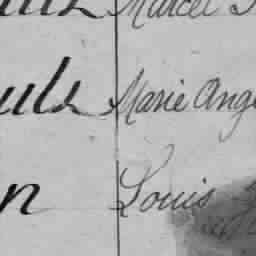 Marcel
uls Marie Ang
n Louis